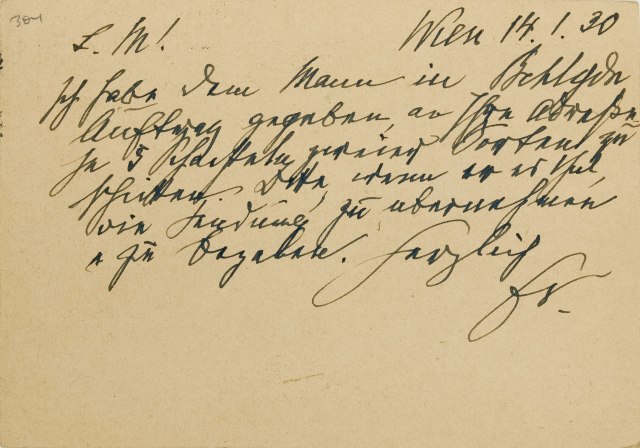 304
Wien 14.1.30
L. M!
Ich habe dem Mann in
Auftrag gegeben, an Ihre Adreße
je 5 Schachteln zweier Sorten zu
schicken. Bitte, wenn er es thut,
die Sendung zu übernehmen
u zu begeben. Herzlich
Fr.